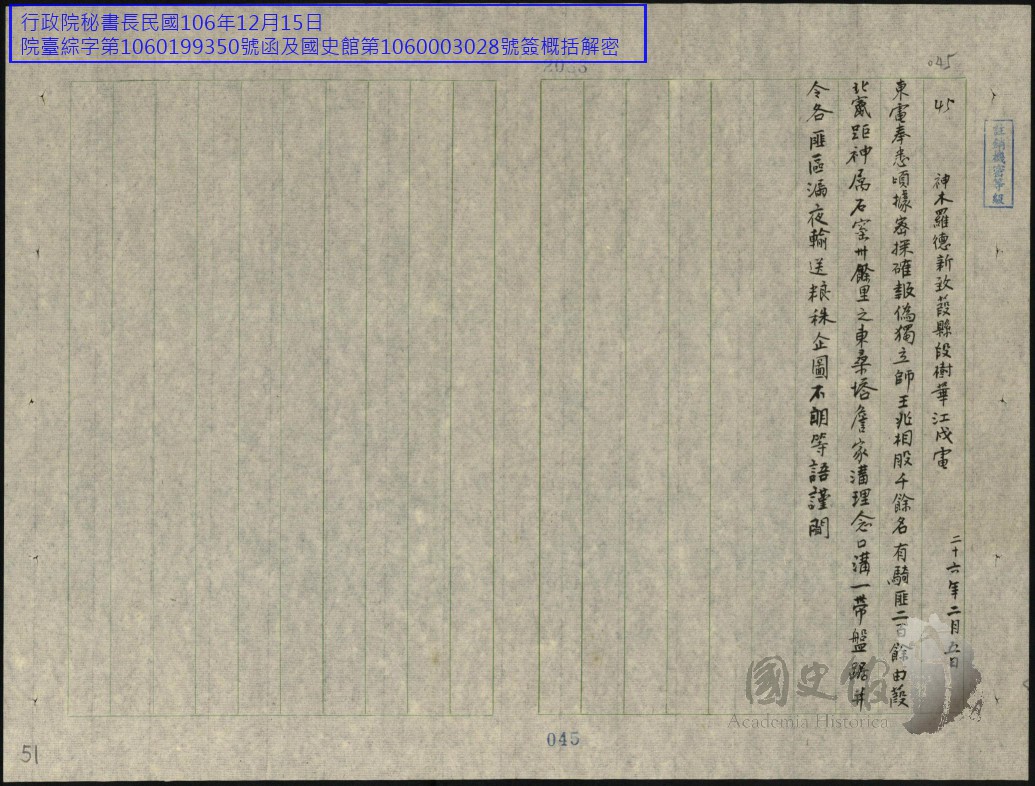 行政院秘書長民國106年12月15日
院臺綜字第1060199350號函及國史館第1060003028號簽概括解密
045
註銷機密等級
45
神木羅德新致葭縣段樹華江戌電
二十六年二月五日
東電奉悉頃據密探確報偽獨立師王兆相股千餘名有騎匪二百餘由葭
北竄距神属石窑卅餘里之東桑塔詹家溝理念口溝一带盤踞并
令各匪區漏夜輸送粮秣企圖不明等語謹聞
國史館
Academia Historica
045
51